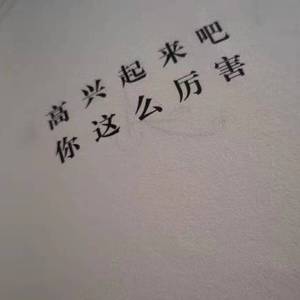 高兴起来吧
你这么厉害